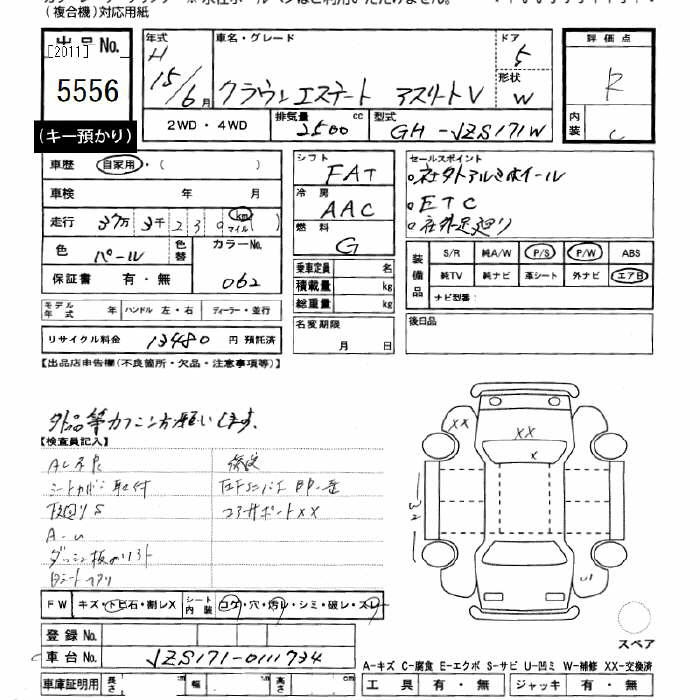 (複合機)対応用紙
出品 No.
[2011]
5556
(キー預かり)
年式 車名・グレード ドア 評価点
H 5 R
15/6月 クラウンエステート アスリートV 形状 W
内装 C
2WD・4WD 排気量 2500cc 型式 GH-JZS171W
車歴 自家用・( )
車検 年 月
走行 37万 3千 230 km マイル ( )
色 パール 色替 カラーNo.
保証書 有・無 062
モデル年式 年 ハンドル 左・右 ディーラー・並行
リサイクル料金 13480 円 預託済
シフト FAT
冷房 AAC
燃料 G
乗車定員 名
積載量 kg
総重量 kg
名変期限 月 日
セールスポイント
社外アルミホイール
ETC
社外足廻り
装備品 S/R 純A/W P/S P/W ABS
純TV 純ナビ 革シート 外ナビ エアB
ナビ型番:
後日品
【出品店申告欄(不良箇所・欠品・注意事項等)】
【検査員記入】
シートカバー取付
下回りS
A-U
コアサポートXX
XX XX X
W2
U
FW キズ・トビ石・割レX シート内装 コゲ・穴・汚レ・シミ・破レ・スレ
登録 No.
車台 No. JZS171-0111734
車庫証明用 長さ 幅 高さ
スペア
A-キズ C-腐食 E-エクボ S-サビ U-凹ミ W-補修 XX-交換済
工具 有・無 ジャッキ 有・無